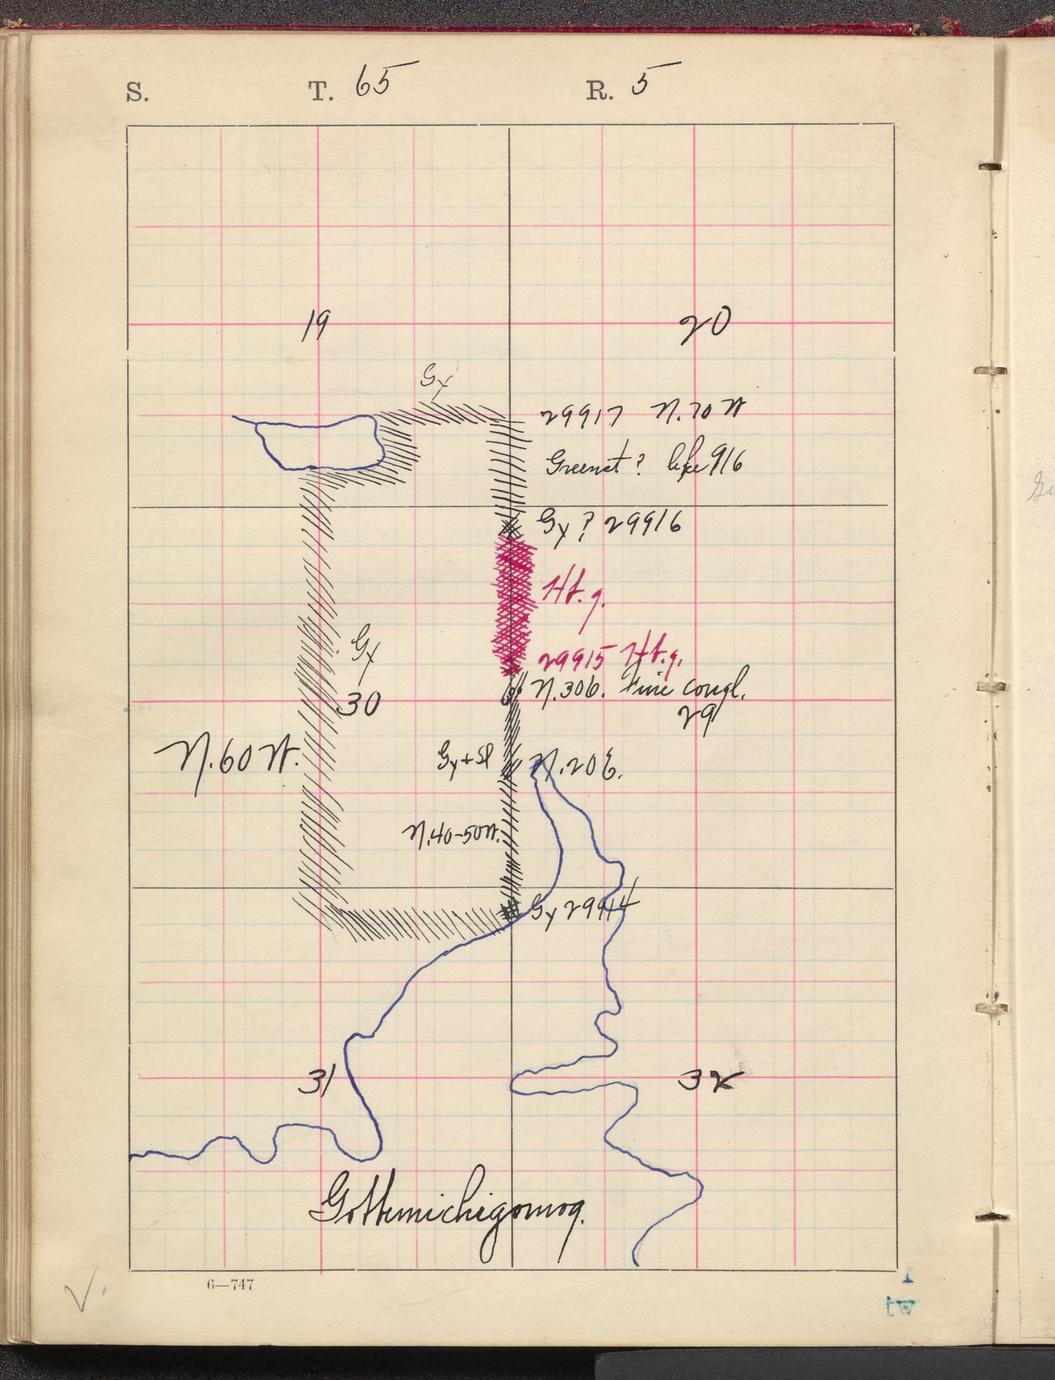 S. T. 65 R. 5
19 20
Gy
29917 N. 70 W
Greenst? like 916
Gy? 29916
Ht. g.
Gy
29915 Ht. g.
N. 30 E. Fine congl.
30 29
N. 60 W. Gy + Sl N. 20 E.
N. 40-50 W.
Gy 29914
31 32
6—747